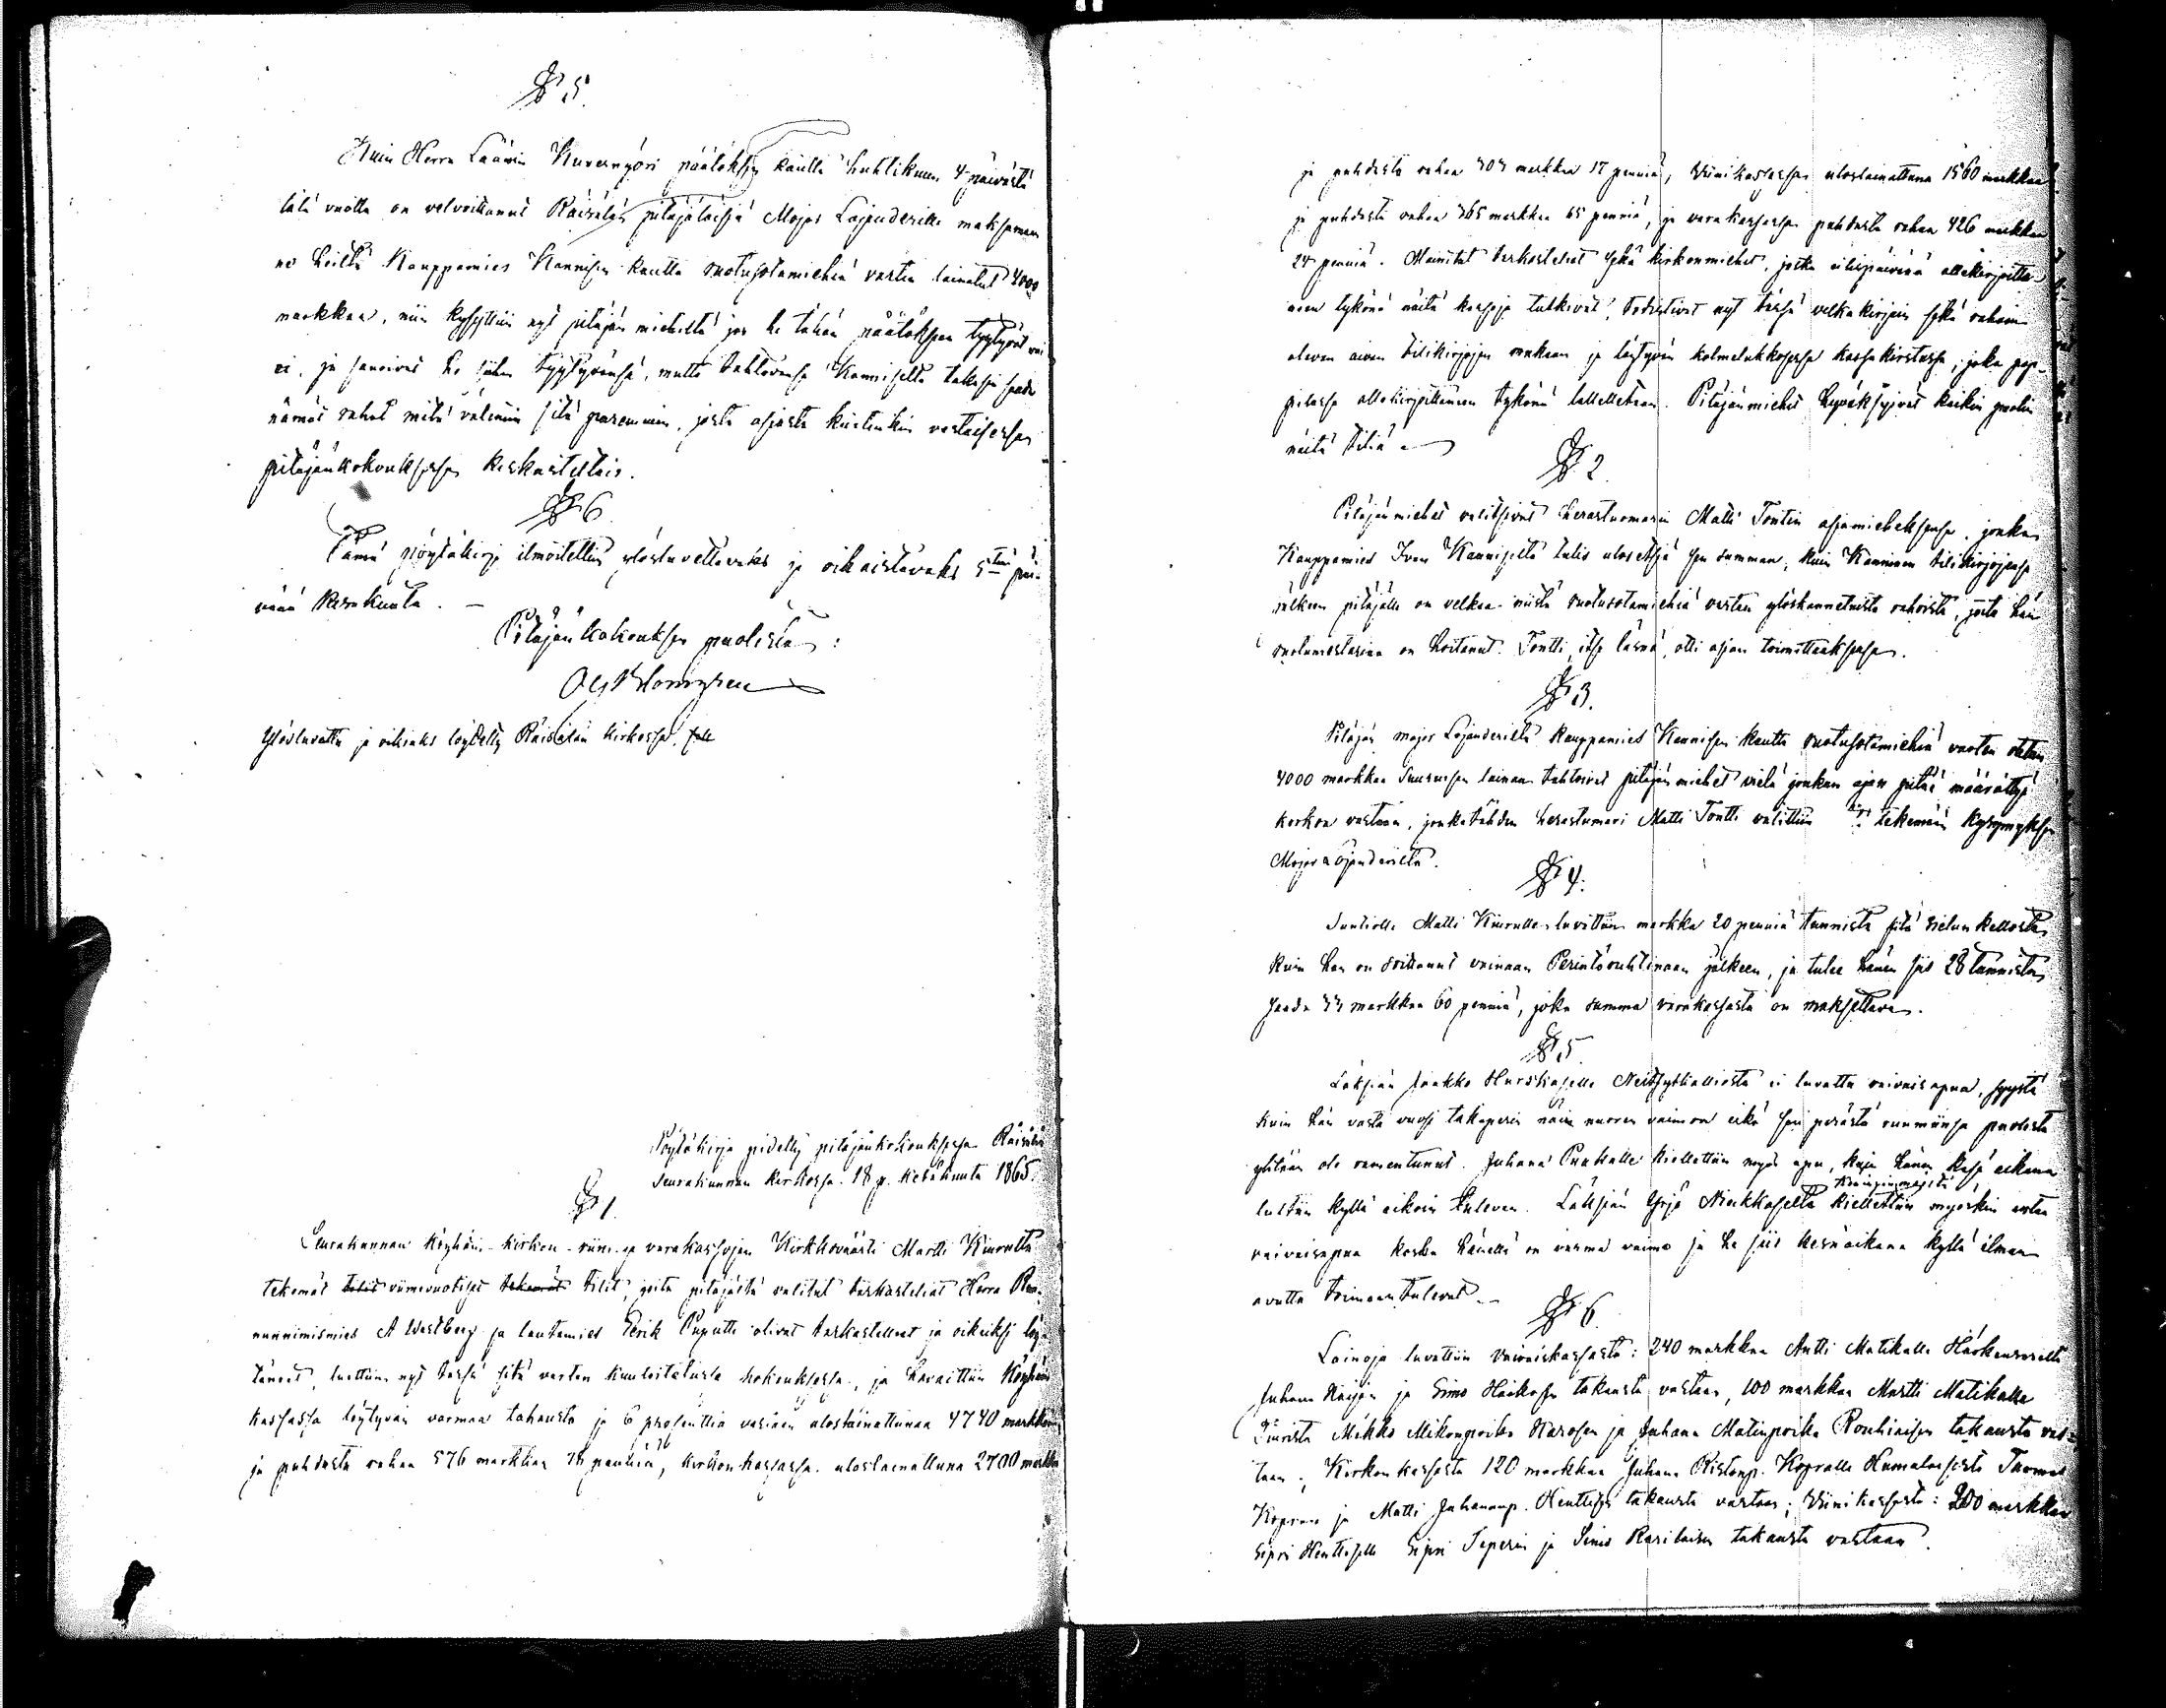 § 5.
Kuin Herra Läänin Kuvernyöri päätöksen kautta huhtikuun 4 päivästä
tätä vuotta on velvoittanut Räisälän pitäjäläisiä Majer Lojanderille maksamaan
ne heiltä Kauppamies Kannisen kautta ruotusotamiehiä varten lainatut 4000
markkaa, niin kysyttiin nyt pitäjän miehiltä jos he tähän päätökseen tyytyvät vai
ei, ja sanoivat he siihen tyytyvänsä, mutta tahtovansa Kanniselta takasin saada
nämät rahat mitä välemmin sitä paremmin, josta asiasta kuitenkin vastaisessa
pitäjänkokouksessa keskusteltais.
§ 6
Tämä pöytäkirja ilmoitettiin ylösluettavaksi ja oikaistavaksi 5 päi-
vänä kesäkuuta. —
Pitäjänkokouksen puolesta:
Ylösluvattu ja oikiaksi löydetty Räisälän kirkossa
Pöytäkirja pidetty pitäjänkokouksessa Räisälän
seurakunnan kirkossa 18 p. Kesäkuuta 1865.
§ 1.
Seurakunnan köyhäin- kirkon- viini- ja varakassojen Kirkkoväärti Martti Kiurulta
tekemät viimevuotiset tilit, joita pitäjästä valitut tarkasteliat Herra Ru-
nunnimismies A Westberg ja lautamies Erik Puputti olivat tarkastelleet ja oikeiksi löy-
täneet, luettiin nyt tässä sitä varten kuulutetussa kokouksessa, ja havaittiin Köyhäin
kassassa löytyvän varmaa takausta ja 6 prosenttia vastaan uloslainattuna 4740 markkaa
ja puhdasta rahaa 576 markkaa penniä, kirkon kassassa uloslainattuna 2700 markkaa
ja puhdasta rahaa 303 markkaa 17 penniä, Viinikassassa uloslainattuna 1560 markkaa
ja puhdasta rahaa 365 markkaa 65 penniä, ja varakassassa puhdasta rahaa 426 markkaa
24 penniä. Mainitut tarkasteliat sekä kirkonmiehet, jotka eilispäivänä allekirjoitta-
neen tykönä näitä kassoja tutkivat, todistivat nyt tässä velkakirjain sekä rahain
olevan aivan tilikirjojen mukaan ja löytyvän kolmelukkosessa kassakirstussa, joka pap-
pilassa allekirjoittaneen tykönä talletetaan. Pitäjänmiehet hyväksyivät kaikin puolin
näitä tiliä.
§ 2
Pitäjänmiehet valitsivat herastuomarin Matti Tontin asiamieheksensä, jonka
Kauppamies Ivan Kanniselta tulis ulosetsiä sen summan, kuin Kanninen tilikirjojensa
jälkeen pitäjälle on velkaa niistä ruotusotamiehiä varten ylöskannetuista rahoista, joita hän
ruotumestarina on hoitanut. Tontti, itse läsnä, otti asian toimittaaksensa.
§ 3.
Pitäjän majer Lojanderilta Kauppamies Kannisen kautta ruotusotamiehiä varten ottaman
4000 markkaa suurusen lainan tahtoivat pitäjän miehet vielä jonkun ajan pitää määrättyä
korkoa vastaan, jonka tähden herastuomari Matti Tontti valittiin tekemään kysymyksen
Majer Lojanderilta.
§ 4.
Suntiolle Matti Kiurulle luvattiin markka 20 penniä tunnista sitä sielun kellosta
kuin hän on soittanut vainaan Perintöruhtinaan jälkeen, ja tulee hänen siis 28 tunnista
saada 33 markkaa 60 penniä, joka summa varakassasta on maksettava.
§ 5
Loksian Jaakko Hurskaselle ei luvattu vaivaisapua, syystä
kuin hän vasta vuosi takaperin nai nuoren vaimon eikä sen perästä ruumiinsa puolesta
ylitän ole ramentunut. Juhana Puukalle kiellettiin myös apu, koska hänen kesä aikana
luttiin kyllä aikoin tulevan. Loksian Yrjö Ninkkaselta kiellettiin myöskin
vaivaisapua koska hänellä on varma vaimo ja he siis kesäaikana kyllä ilman
avutta toimeen tulevat. —
§ 6
Lainoja luvattiin Vaivaiskassasta: 240 markkaa Antti Matikalle
Juhana ja Simo takausta vastaan, 100 markkaa Martti Matikalle
Mikko Mikonpoika ja Juhana Matinpoika takausta vas-
taan; Kirkon kassasta 120 markkaa Juhana Ristonp. Kopralle Humalaisista Tuomas
Kopran ja Matti Juhananp. Henttisen takausta vastaan; Viinikassasta: 200 markkaa
Sipri Henttiselle Sipri Teperin ja Simo Rasilaisen takausta vastaan.